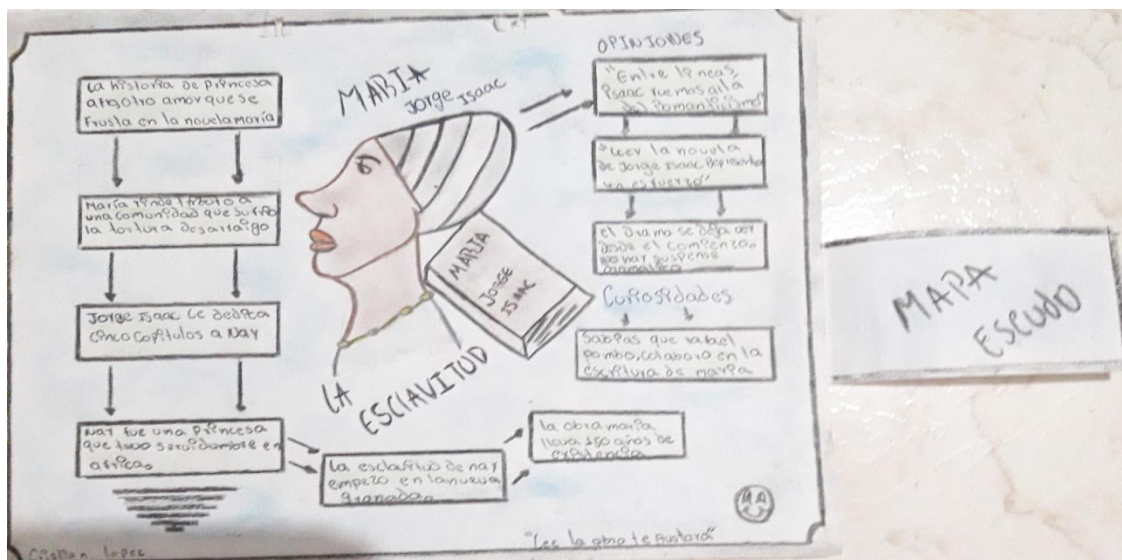 MARIA
Jorge Isaac
La historia de princesa
otro amor que se
frusta en la novela maría
María rinde tributo a
una comunidad que sufrio
la tortura desarraigo
Jorge Isaac le dedica
cinco capitulos a Nay
Nay fue una princesa
que tuvo servidumbre en
africa.
La esclafitud de nay
empezo en la nueva
granada.
la obra maria
lleva 150 años de
existencia
MARIA
JORGE
ISAAC
LA
ESCLAVITUD
OPINIONES
"Entre lineas,
Isaac fue mas alla
del Romanticismo"
"Leer la novela
de Jorge Isaac Representa
un esfuerzo"
el drama se deja ver
desde el comienzo.
no hay suspenso
Curiosidades
Sabias que rafael
pombo, colaboro en la
escritura de maria
Cristian Lopez
"Lee la obra te gustara"
MAPA
ESCUDO